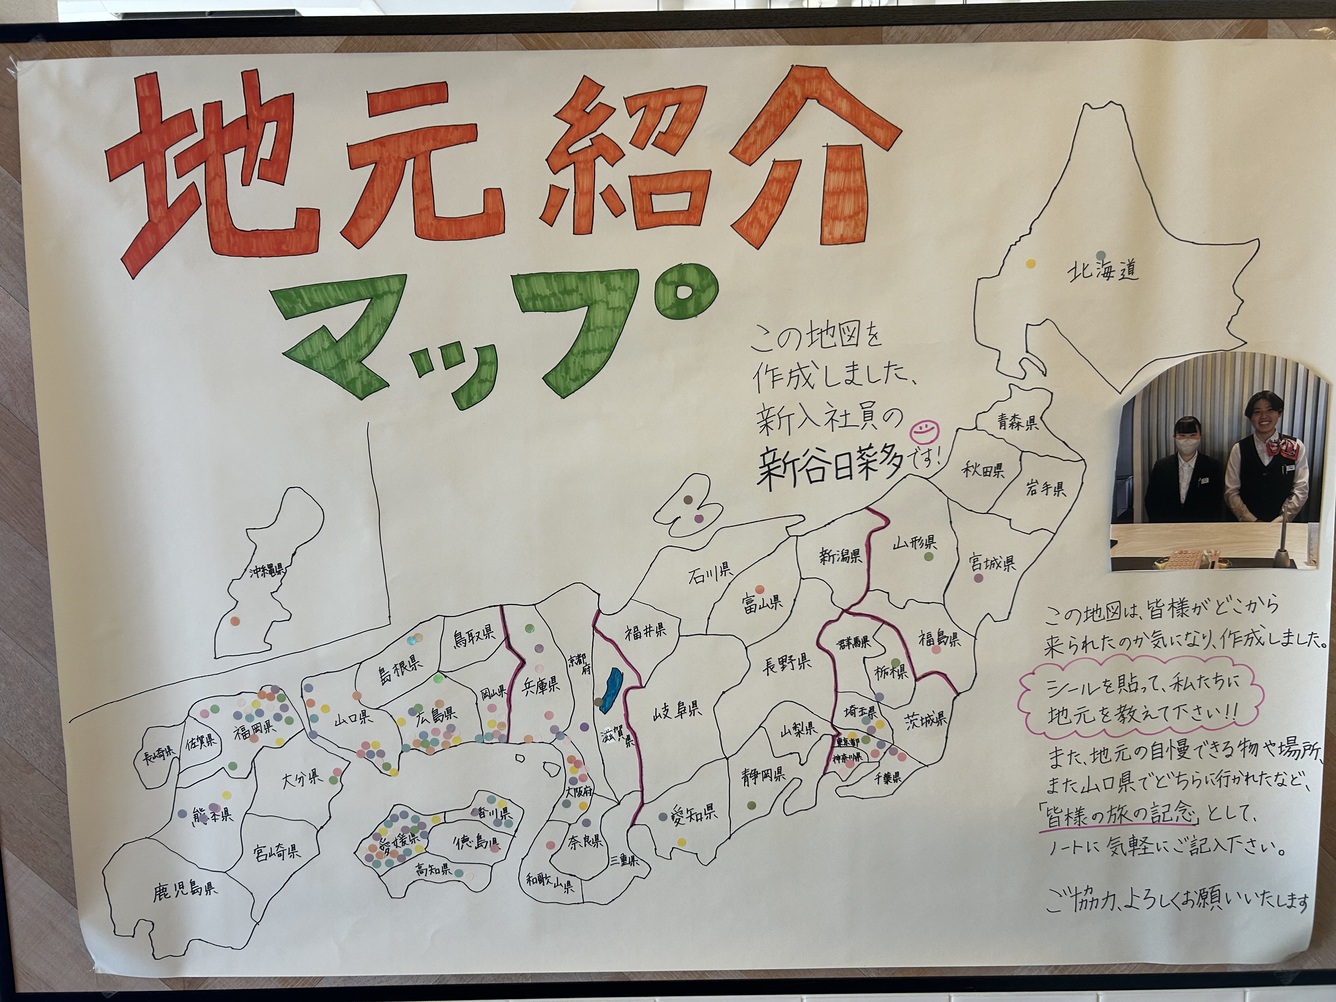 地元紹介
マップ
この地図を
作成しました、
新入社員の
新谷日菜多です!
北海道
青森県
秋田県
岩手県
山形県
宮城県
福島県
新潟県
石川県
富山県
福井県
長野県
群馬県
栃木県
茨城県
埼玉県
東京都
神奈川県
千葉県
山梨県
静岡県
岐阜県
愛知県
滋賀県
京都府
兵庫県
大阪府
奈良県
三重県
和歌山県
鳥取県
島根県
岡山県
広島県
山口県
香川県
徳島県
愛媛県
高知県
福岡県
佐賀県
長崎県
大分県
熊本県
宮崎県
鹿児島県
沖縄県
この地図は、皆様がどこから
来られたのか気になり、作成しました。
シールを貼って、私たちに
地元を教えて下さい!!
また、地元の自慢できる物や場所、
また山口県でどちらに行かれたなど、
「皆様の旅の記念」として、
ノートに気軽にご記入下さい。
ご協力、よろしくお願いいたします